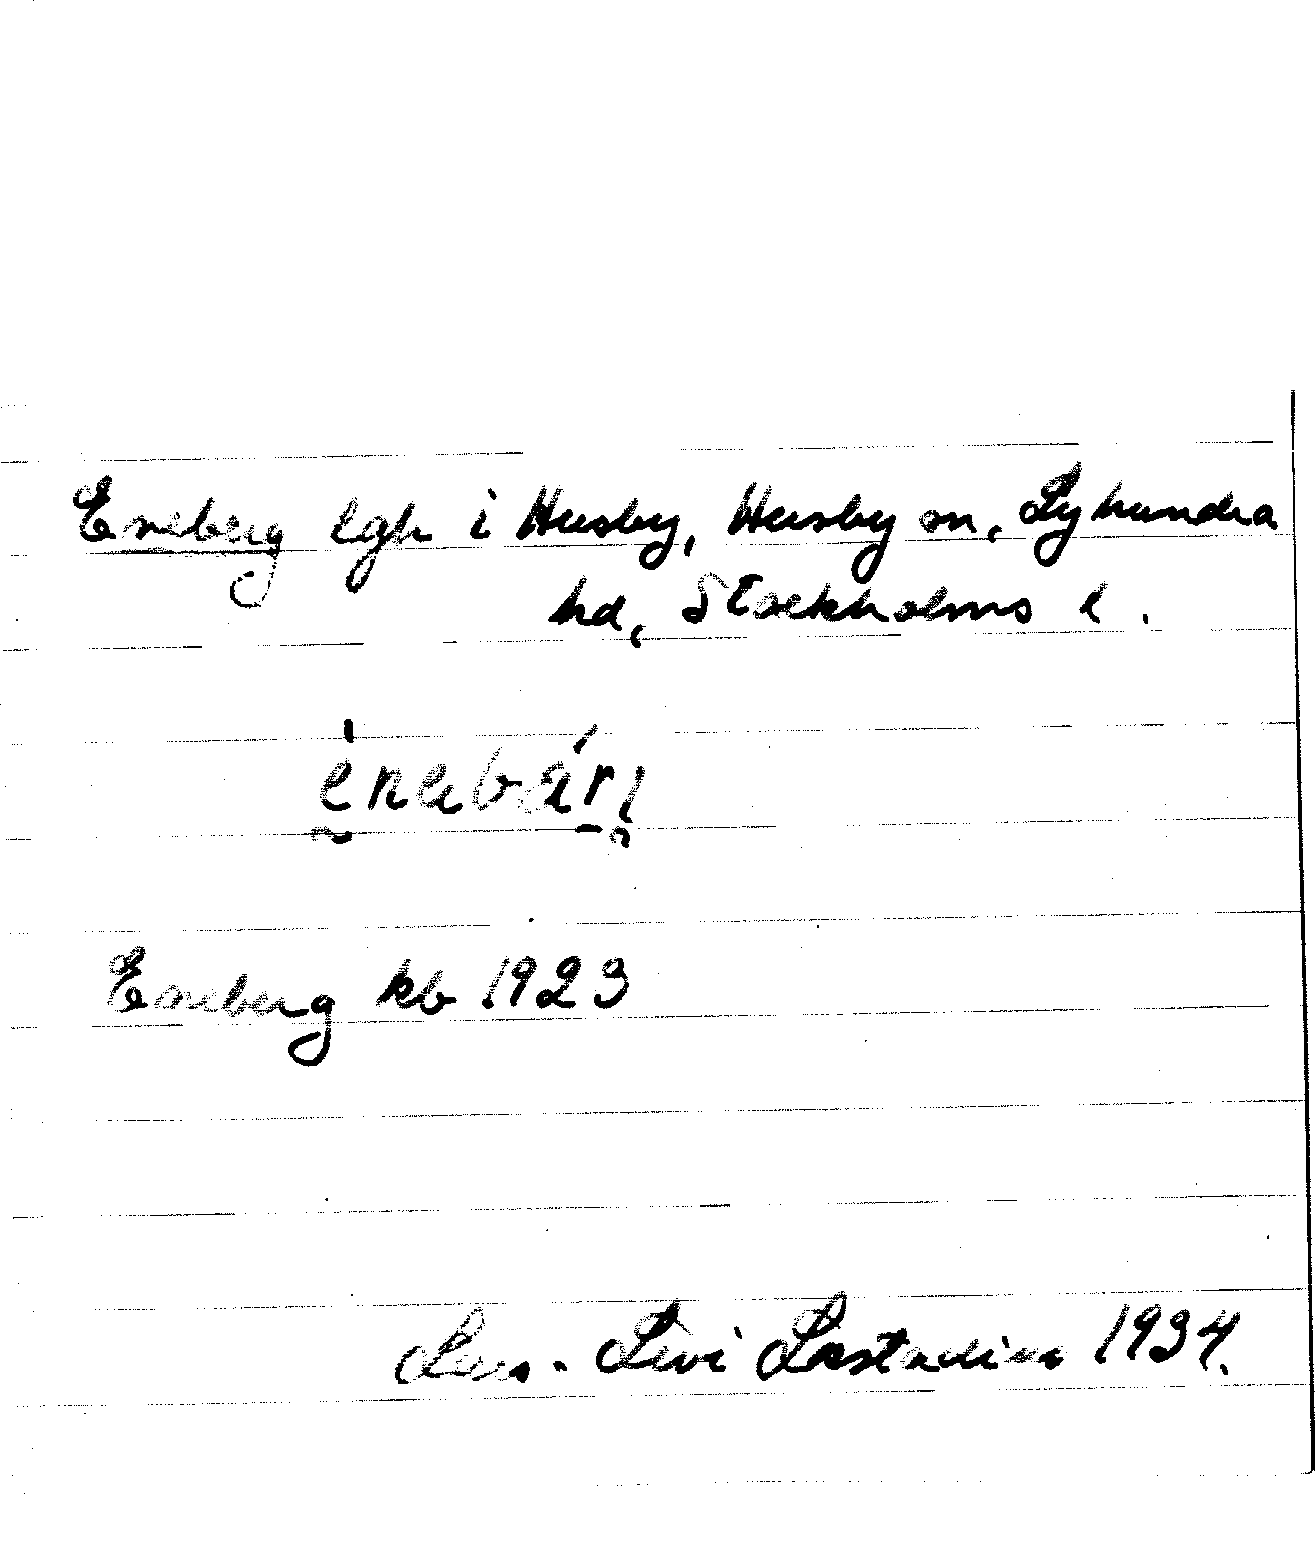 Eneberg lgh i Husby, Husby sn, Lyhundra
hd, Stockholms l.
Eneberg kb 1923
Lars-Levi Læstadius 1934.